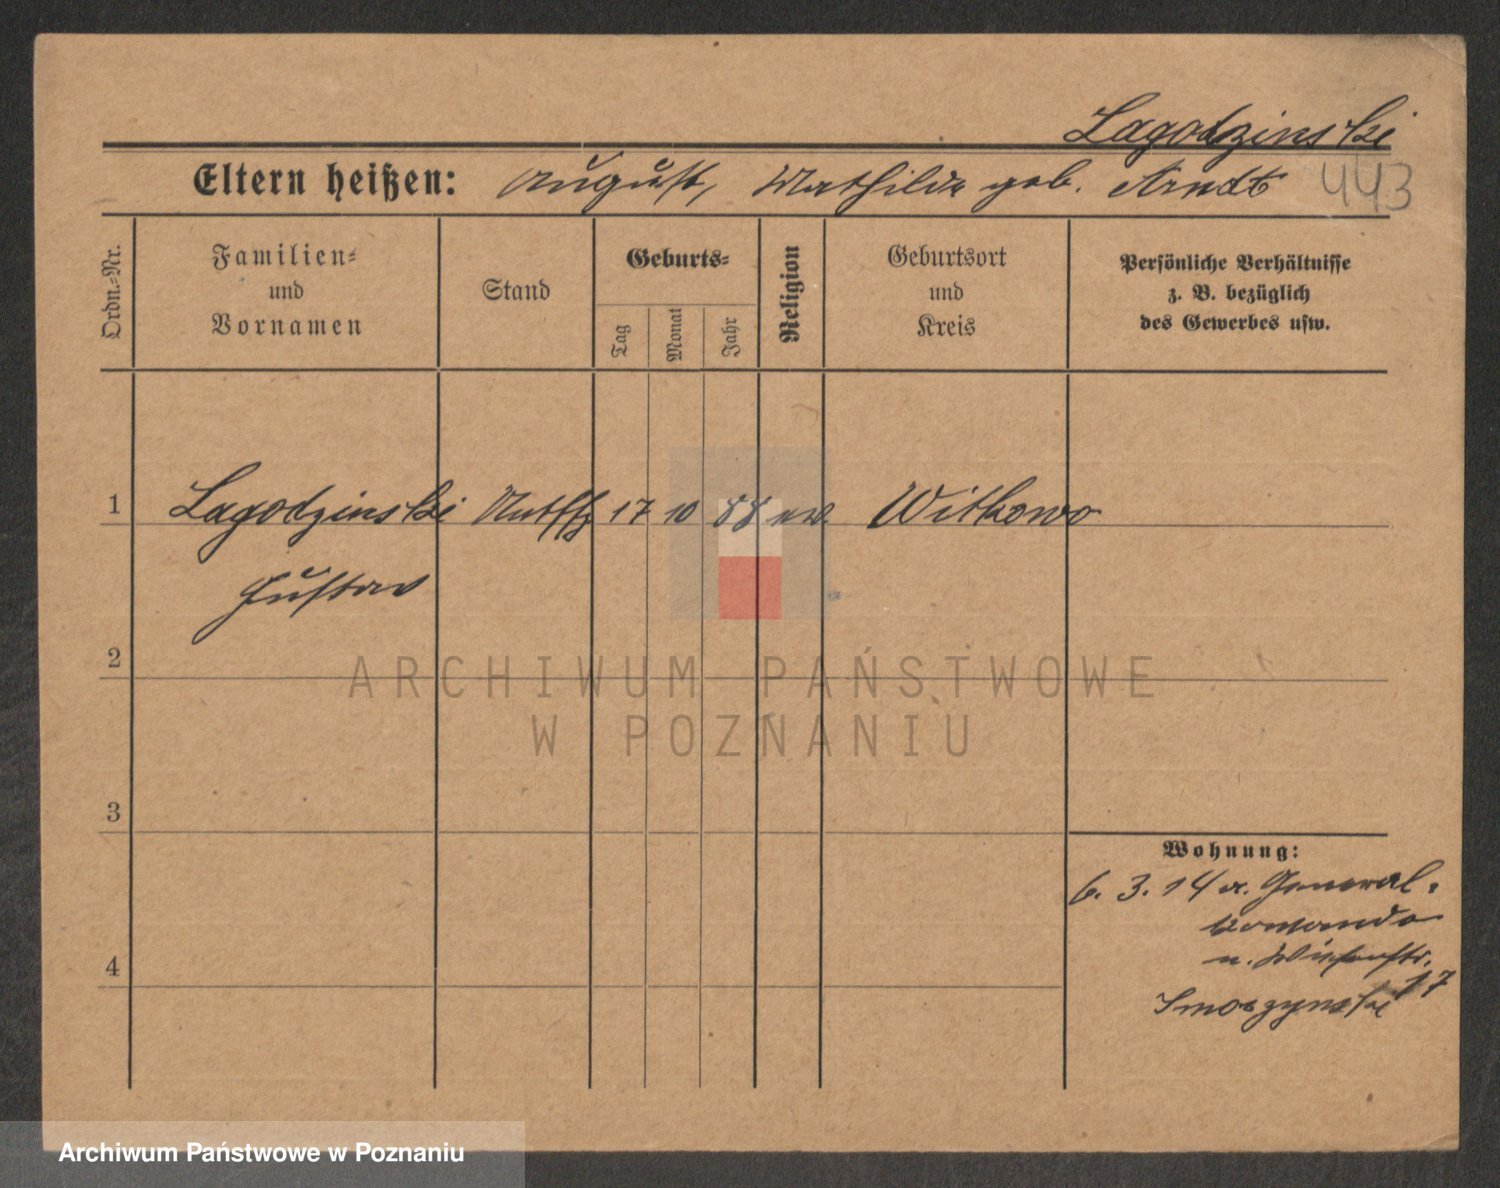 Lagodzinski
Eltern heißen: August, Mathilde geb. Arndt 443
Ordn.-Nr.
Familien-
und
Vornamen
Stand
Geburts-
Tag
Monat
Jahr
Religion
Geburtsort
und
Kreis
Persönliche Verhältnisse
z. B. bezüglich
des Gewerbes usw.
1 Lagodzinski 17 10 88 ev. Witkowo
Gustav
2
ARCHIWUM PAŃSTWOWE
W POZNANIU
3
Wohnung:
6. 3. 14 a. General-
komando
n. 17
4
Smoszynski
Archiwum Państwowe w Poznaniu